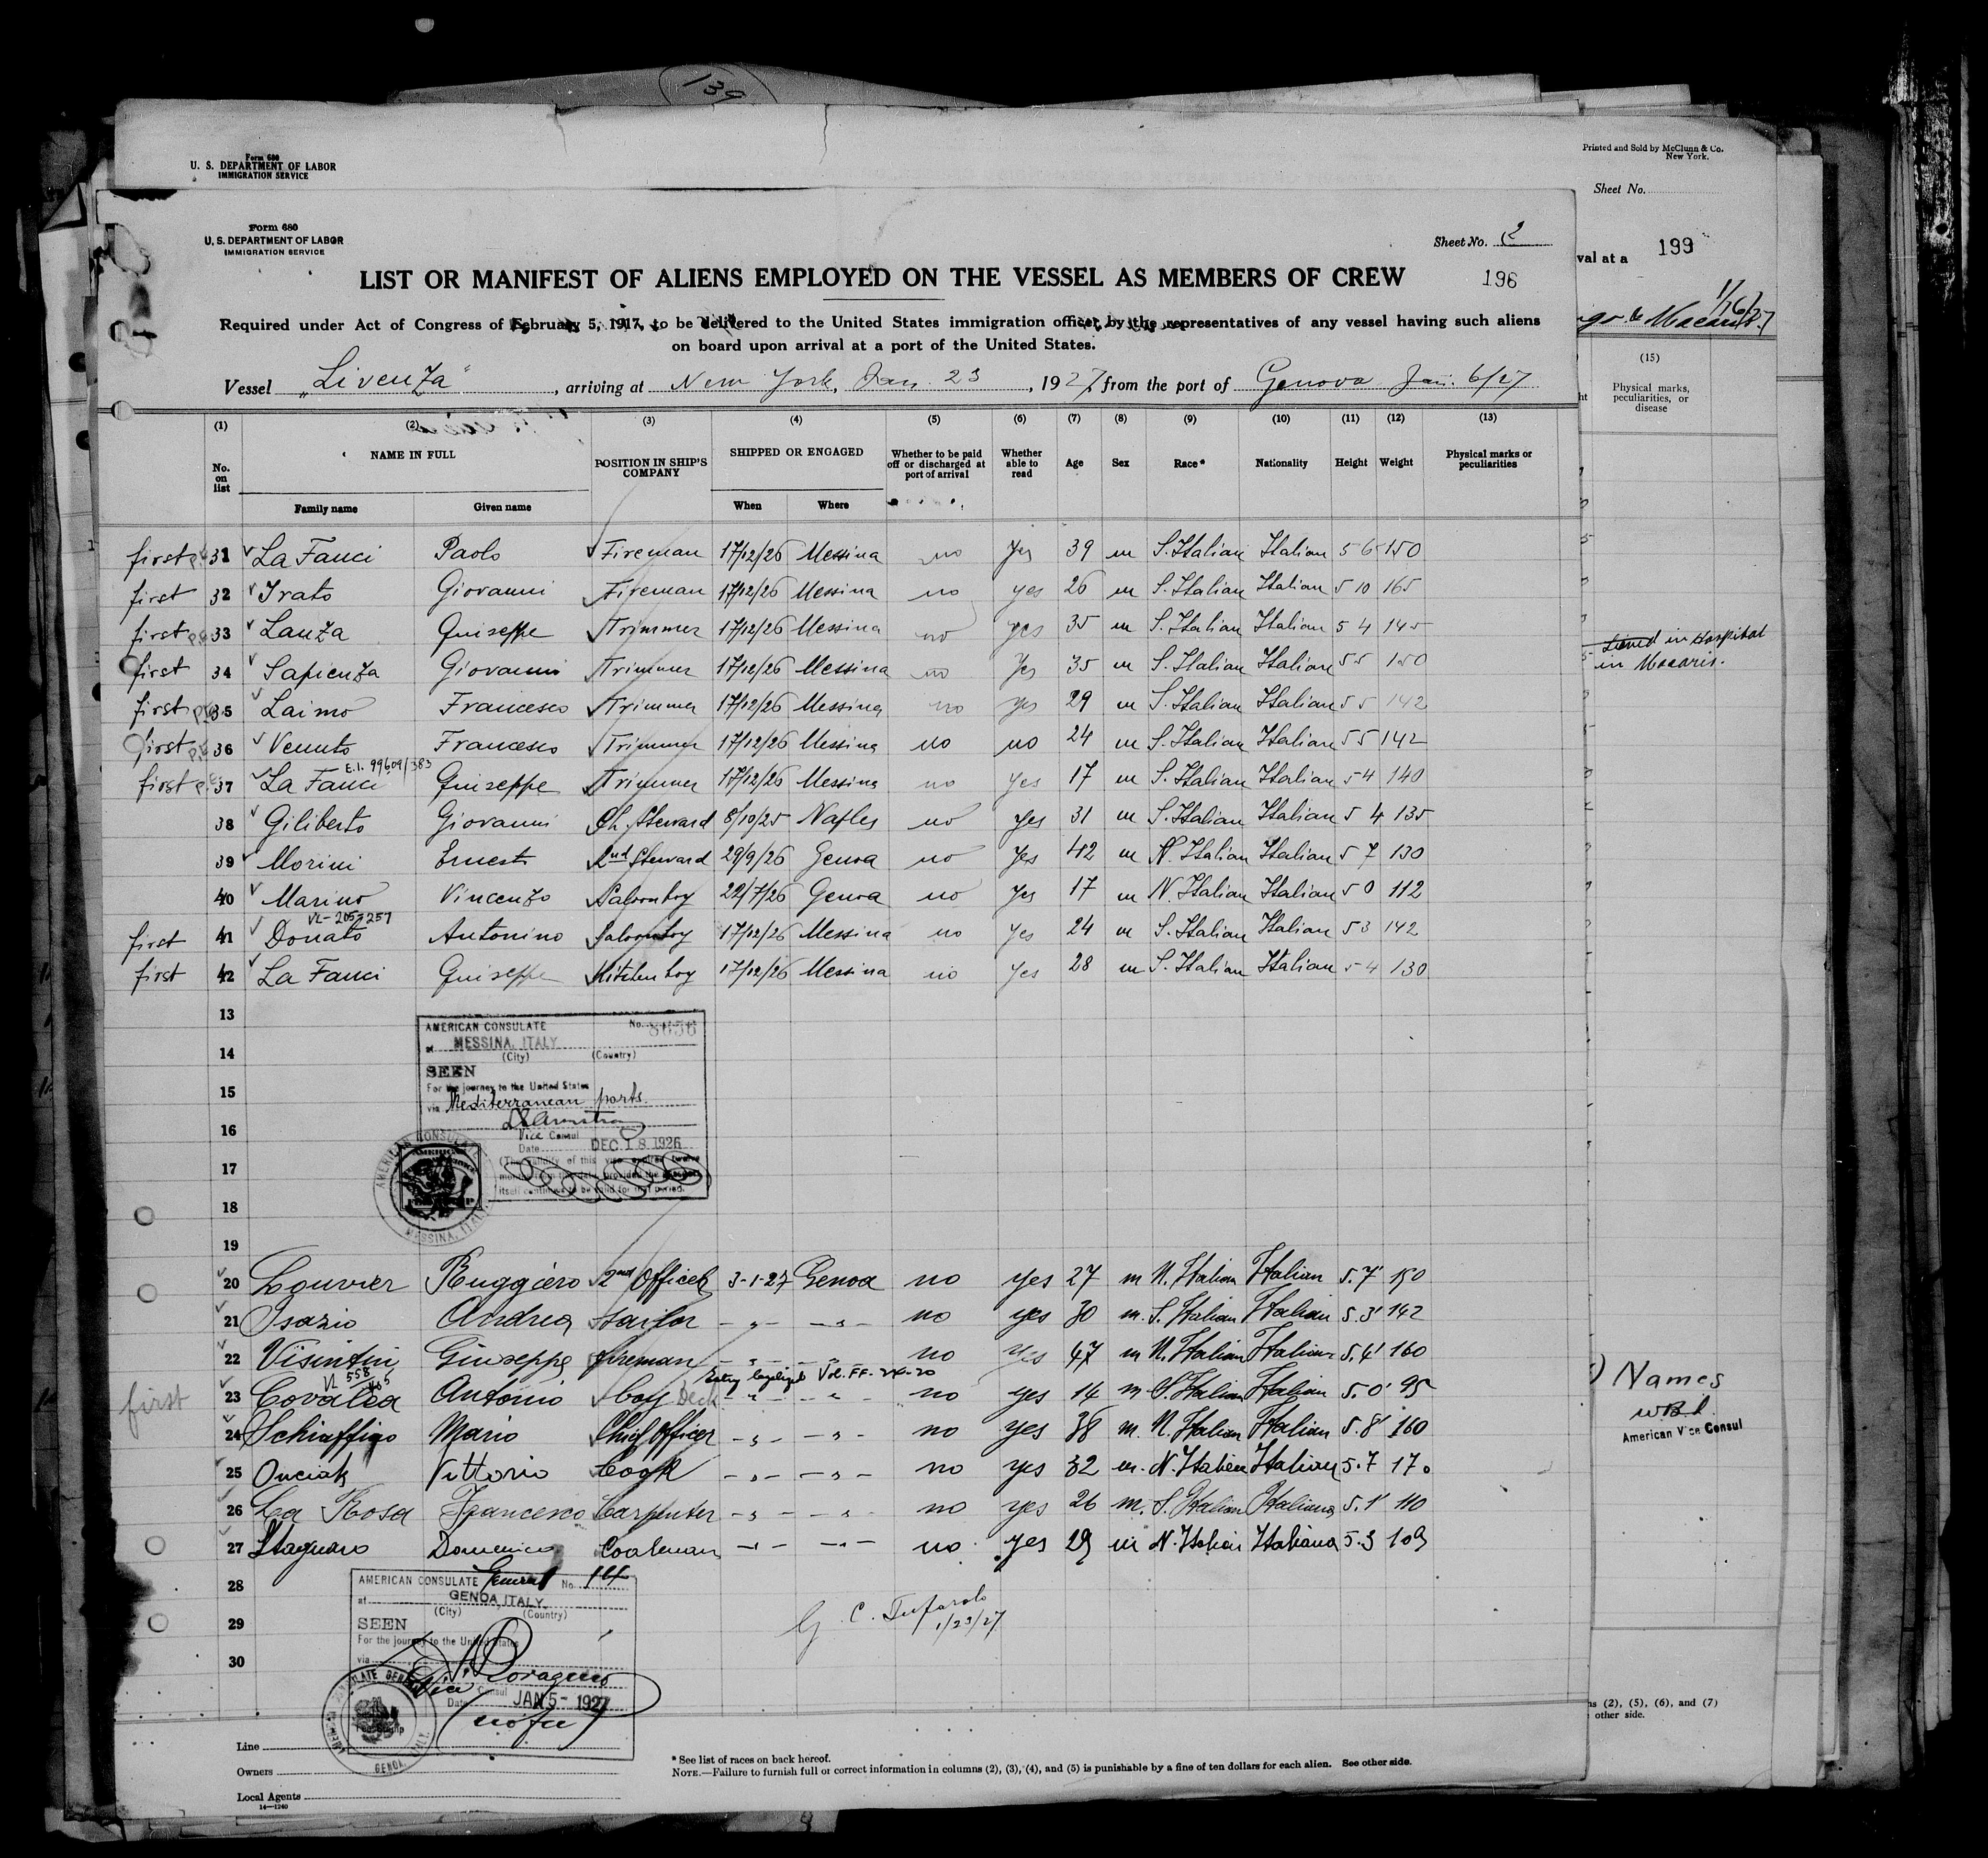 139
Form 680
U. S. DEPARTMENT OF LABOR
IMMIGRATION SERVICE
Printed and Sold by McClunn & Co.
New York.
Sheet No.
Form 680
U. S. DEPARTMENT OF LABOR
IMMIGRATION SERVICE
Sheet No. 2
val at a 199
LIST OR MANIFEST OF ALIENS EMPLOYED ON THE VESSEL AS MEMBERS OF CREW
196
1/26/27
Required under Act of Congress of February 5, 1917, to be delivered to the United States immigration officer by the representatives of any vessel having such aliens
on board upon arrival at a port of the United States.
Vessel "Livenza", arriving at New York, Jan. 23, 1927, from the port of Genova Jan. 6/27
(1) (2) (3) (4) (5) (6) (7) (8) (9) (10) (11) (12) (13)
(15)
Physical marks,
peculiarities, or
disease
No. on list NAME IN FULL POSITION IN SHIP'S COMPANY SHIPPED OR ENGAGED Whether to be paid off or discharged at port of arrival Whether able to read Age Sex Race* Nationality Height Weight Physical marks or peculiarities
Family name Given name When Where
first 31 La Fauci Paolo Fireman 17/12/26 Messina no yes 39 m S. Italian Italian 5 6 150
first 32 Irato Giovanni Fireman 17/12/26 Messina no yes 26 m S. Italian Italian 5 10 165
first 33 Lanza Guiseppe Trimmer 17/12/26 Messina no yes 35 m S. Italian Italian 5 4 145
first 34 Sapienza Giovanni Trimmer 17/12/26 Messina no yes 35 m S. Italian Italian 5 5 150
in Hospital
in
first 35 Laimo Francesco Trimmer 17/12/26 Messina no yes 29 m S. Italian Italian 5 5 142
first 36 Venuto Francesco Trimmer 17/12/26 Messina no no 24 m S. Italian Italian 5 5 142
E.I. 99609/383
first 37 La Fauci Guiseppe Trimmer 17/12/26 Messina no yes 17 m S. Italian Italian 5 4 140
38 Giliberto Giovanni Ch. Steward 8/10/25 Naples no yes 31 m S. Italian Italian 5 4 135
39 Morini Ernesto 2nd Steward 29/9/26 Genoa no yes 42 m N. Italian Italian 5 7 130
40 Marino Vincenzo Saloonboy 22/7/26 Genoa no yes 17 m N. Italian Italian 5 0 112
VL-205-257
first 41 Donato Antonino Saloonboy 17/12/26 Messina no yes 24 m S. Italian Italian 5 3 142
first 42 La Fauci Guiseppe Kitchenboy 17/12/26 Messina no yes 28 m S. Italian Italian 5 4 130
13
AMERICAN CONSULATE No. 8656
at MESSINA, ITALY
(City) (Country)
14
SEEN
For the journey to the United States
15
via Mediterranean ports.
16
Vice Consul
Date DEC 18 1926
17
(The validity of this visa expires twelve
months from this date, provided the passport
itself continues to be valid for that period.
AMERICAN CONSULATE
MESSINA, ITALY
18
19
20 Louvier Ruggiero 2nd Officer 3-1-27 Genoa no yes 27 m N. Italian Italian 5.7' 150
21 Isazio Andrea Sailor - " - - " - no yes 30 m. S. Italian Italian 5.3' 142
22 Visintin Giuseppe fireman - " - - " - no yes 47 m N. Italian Italian 5.4' 160
Vol. FF-24-20
first 23 Covalea Antonio boy Deck - " - - " - no yes 14 m S. Italian Italian 5.0' 95
24 Schiaffino Mario Chief Officer - " - - " - no yes 38 m. N. Italian Italian 5.8' 160
25 Onciak Vittorio Cook - " - - " - no yes 32 m. N. Italian Italian 5.7 170
26 La Rosa Francesco Carpenter - " - - " - no yes 26 m. S. Italian Italiana 5.1' 110
27 Stagnaro Domenico Coalman - " - - " - no yes 29 m N. Italian Italiana 5.3 109
Names
American Vice Consul
28
AMERICAN CONSULATE General No. 14
at GENOA, ITALY.
(City) (Country)
29
SEEN
For the journey to the United States
via
30
Vice Consul
Date JAN 5 - 1927
(no fee)
1/23/27
ns (2), (5), (6), and (7)
other side.
Line
Owners
Local Agents
14—1240
* See list of races on back hereof.
NOTE.—Failure to furnish full or correct information in columns (2), (3), (4), and (5) is punishable by a fine of ten dollars for each alien. See other side.